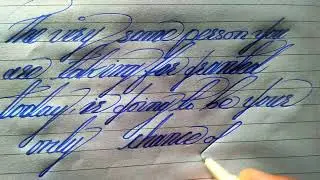 The very same person you
are taking for granted
today is going to be your
only chance of